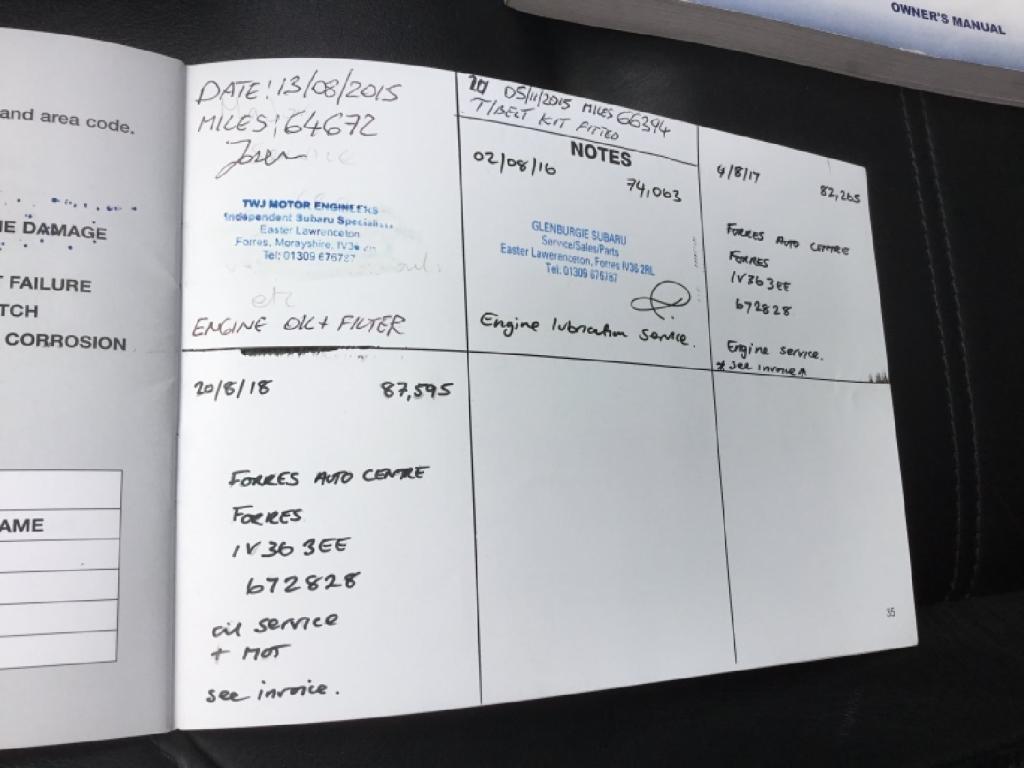 OWNER'S MANUAL
and area code.
DAMAGE
FAILURE
TCH
CORROSION
AME
DATE: 13/08/2015
MILES: 64672
TWJ MOTOR ENGINEERS
Independent Subaru Specialists
Easter Lawrenceton
Forres, Morayshire, IV36
Tel: 01309 676787
etc
ENGINE OIL + FILTER
05/11/2015 MILES 66394
T/BELT KIT FITTED
NOTES
02/08/16 74,063
GLENBURGIE SUBARU
Service/Sales/Parts
Easter Lawerenceton, Forres IV36 2RL
Tel: 01309 676787
Engine lubrication service.
4/8/17 82,265
FORRES AUTO CENTRE
FORRES
IV36 3EE
672828
Engine service.
* see invoice *
20/8/18 87,595
FORRES AUTO CENTRE
FORRES
IV36 3EE
672828
oil service
+ MOT
see invoice.
35